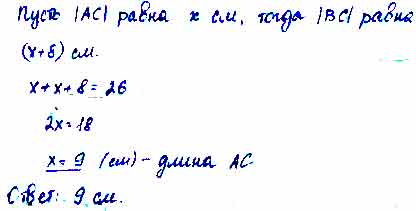 Пусть |AC| равна x см, тогда |BC| равна
(x+8) см.
x+x+8=26
2x=18
x=9 (см) - длина AC
Ответ: 9 см.